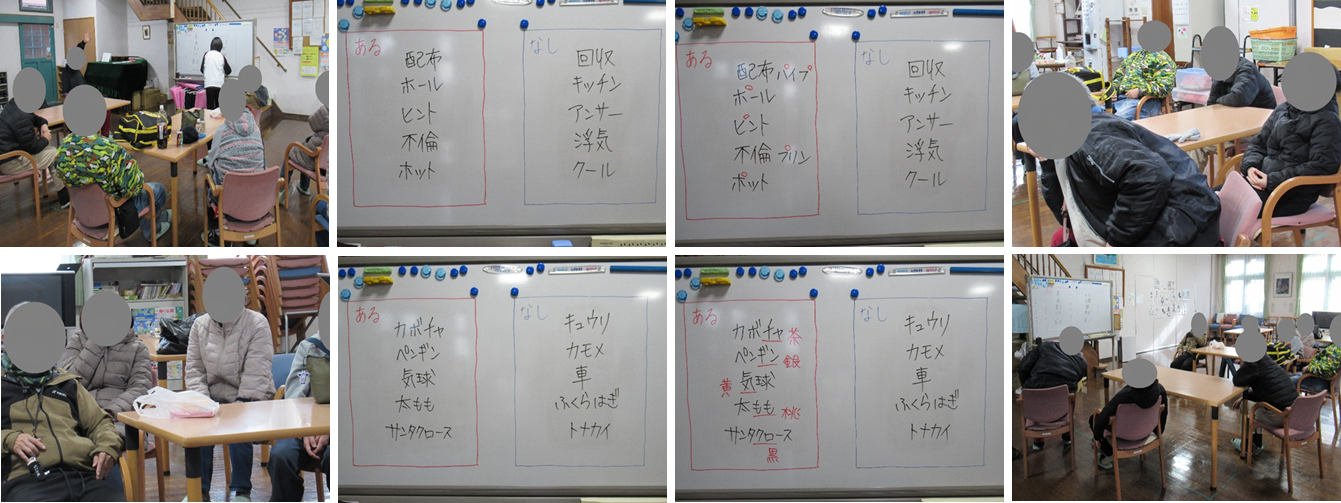 ある
配布
ホール
ヒント
不倫
ホット
なし
回収
キッチン
アンサー
浮気
クール
ある
配布 パイプ
ポール
ピント
不倫 プリン
ポット
なし
回収
キッチン
アンサー
浮気
クール
ある
カボチャ
ペンギン
気球
太もも
サンタクロース
なし
キュウリ
カモメ
車
ふくらはぎ
トナカイ
ある
カボチャ 茶
ペンギン 銀
黄 気球
太もも 桃
サンタクロース
黒
なし
キュウリ
カモメ
車
ふくらはぎ
トナカイ